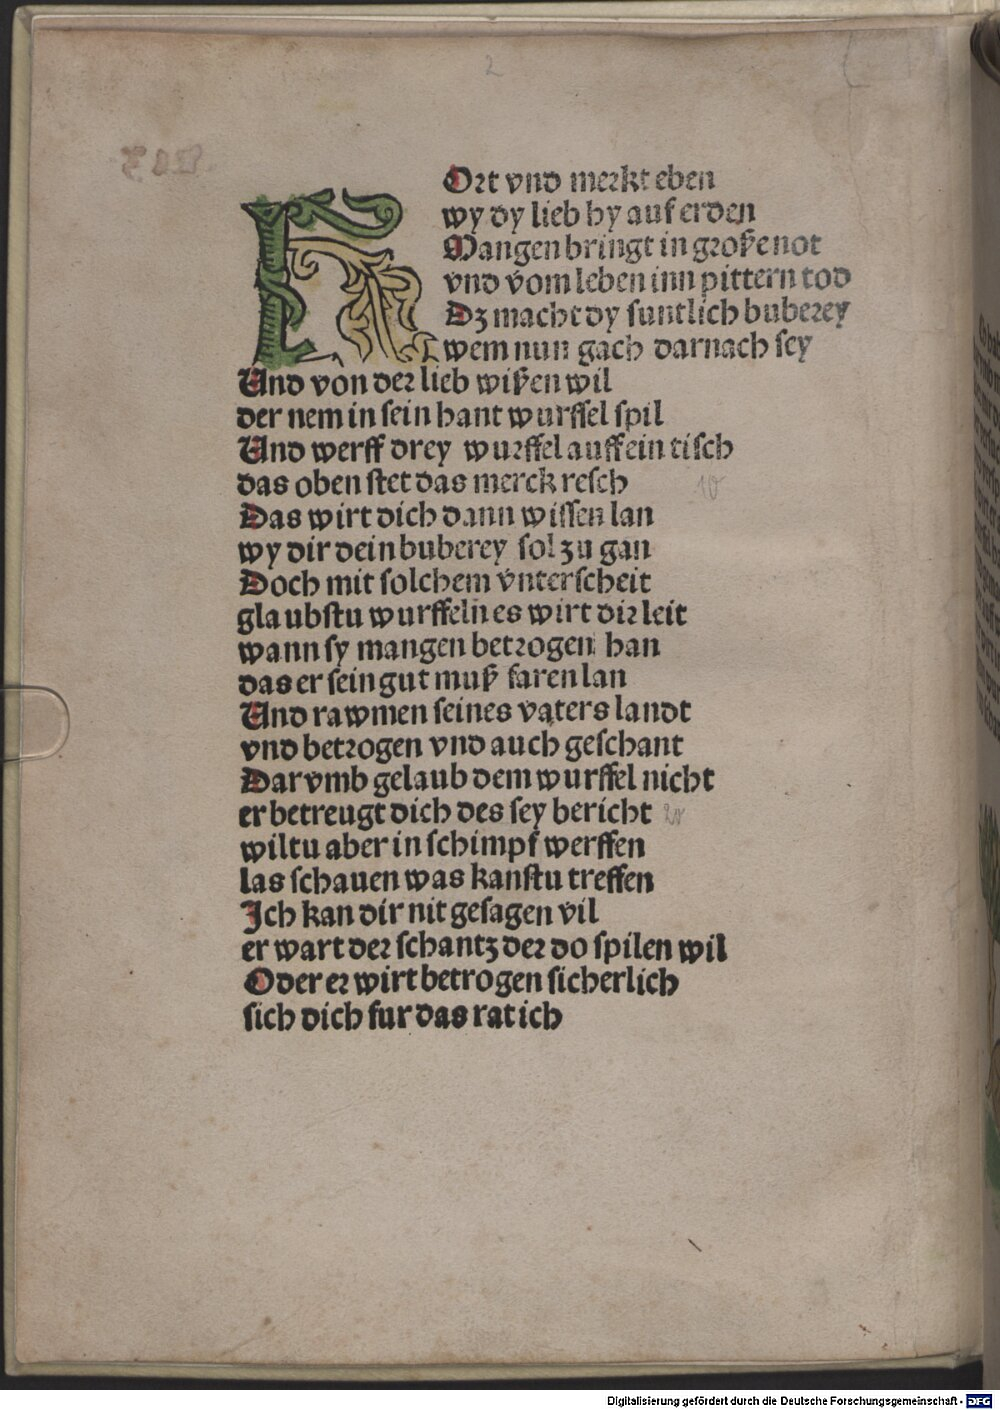 2
HOrt vnd merkt eben
wy dy lieb hy auf erden
Mangen bringt in große not
vnd vom leben inn pittern tod
Dz macht dy suntlich buberey
wem nun gach darnach sey
Und von der lieb wißen wil
der nem in sein hant wurffel spil
Und werff drey wurffel auff ein tisch
das oben stet das merck resch 10
Das wirt dich dann wissen lan
wy dir dein buberey sol zu gan
Doch mit solchem vnterscheit
glaubstu wurffeln es wirt dir leit
wann sy mangen betrogen han
das er sein gut muß faren lan
Und rawmen seines vaters landt
vnd betrogen vnd auch geschant
Darvmb gelaub dem wurffel nicht
er betreugt dich des sey bericht 20
wiltu aber in schimpf werffen
las schauen was kanstu treffen
Ich kan dir nit gesagen vil
er wart der schantz der do spilen wil
Oder er wirt betrogen sicherlich
sich dich fur das rat ich
Digitalisierung gefördert durch die Deutsche Forschungsgemeinschaft - DFG